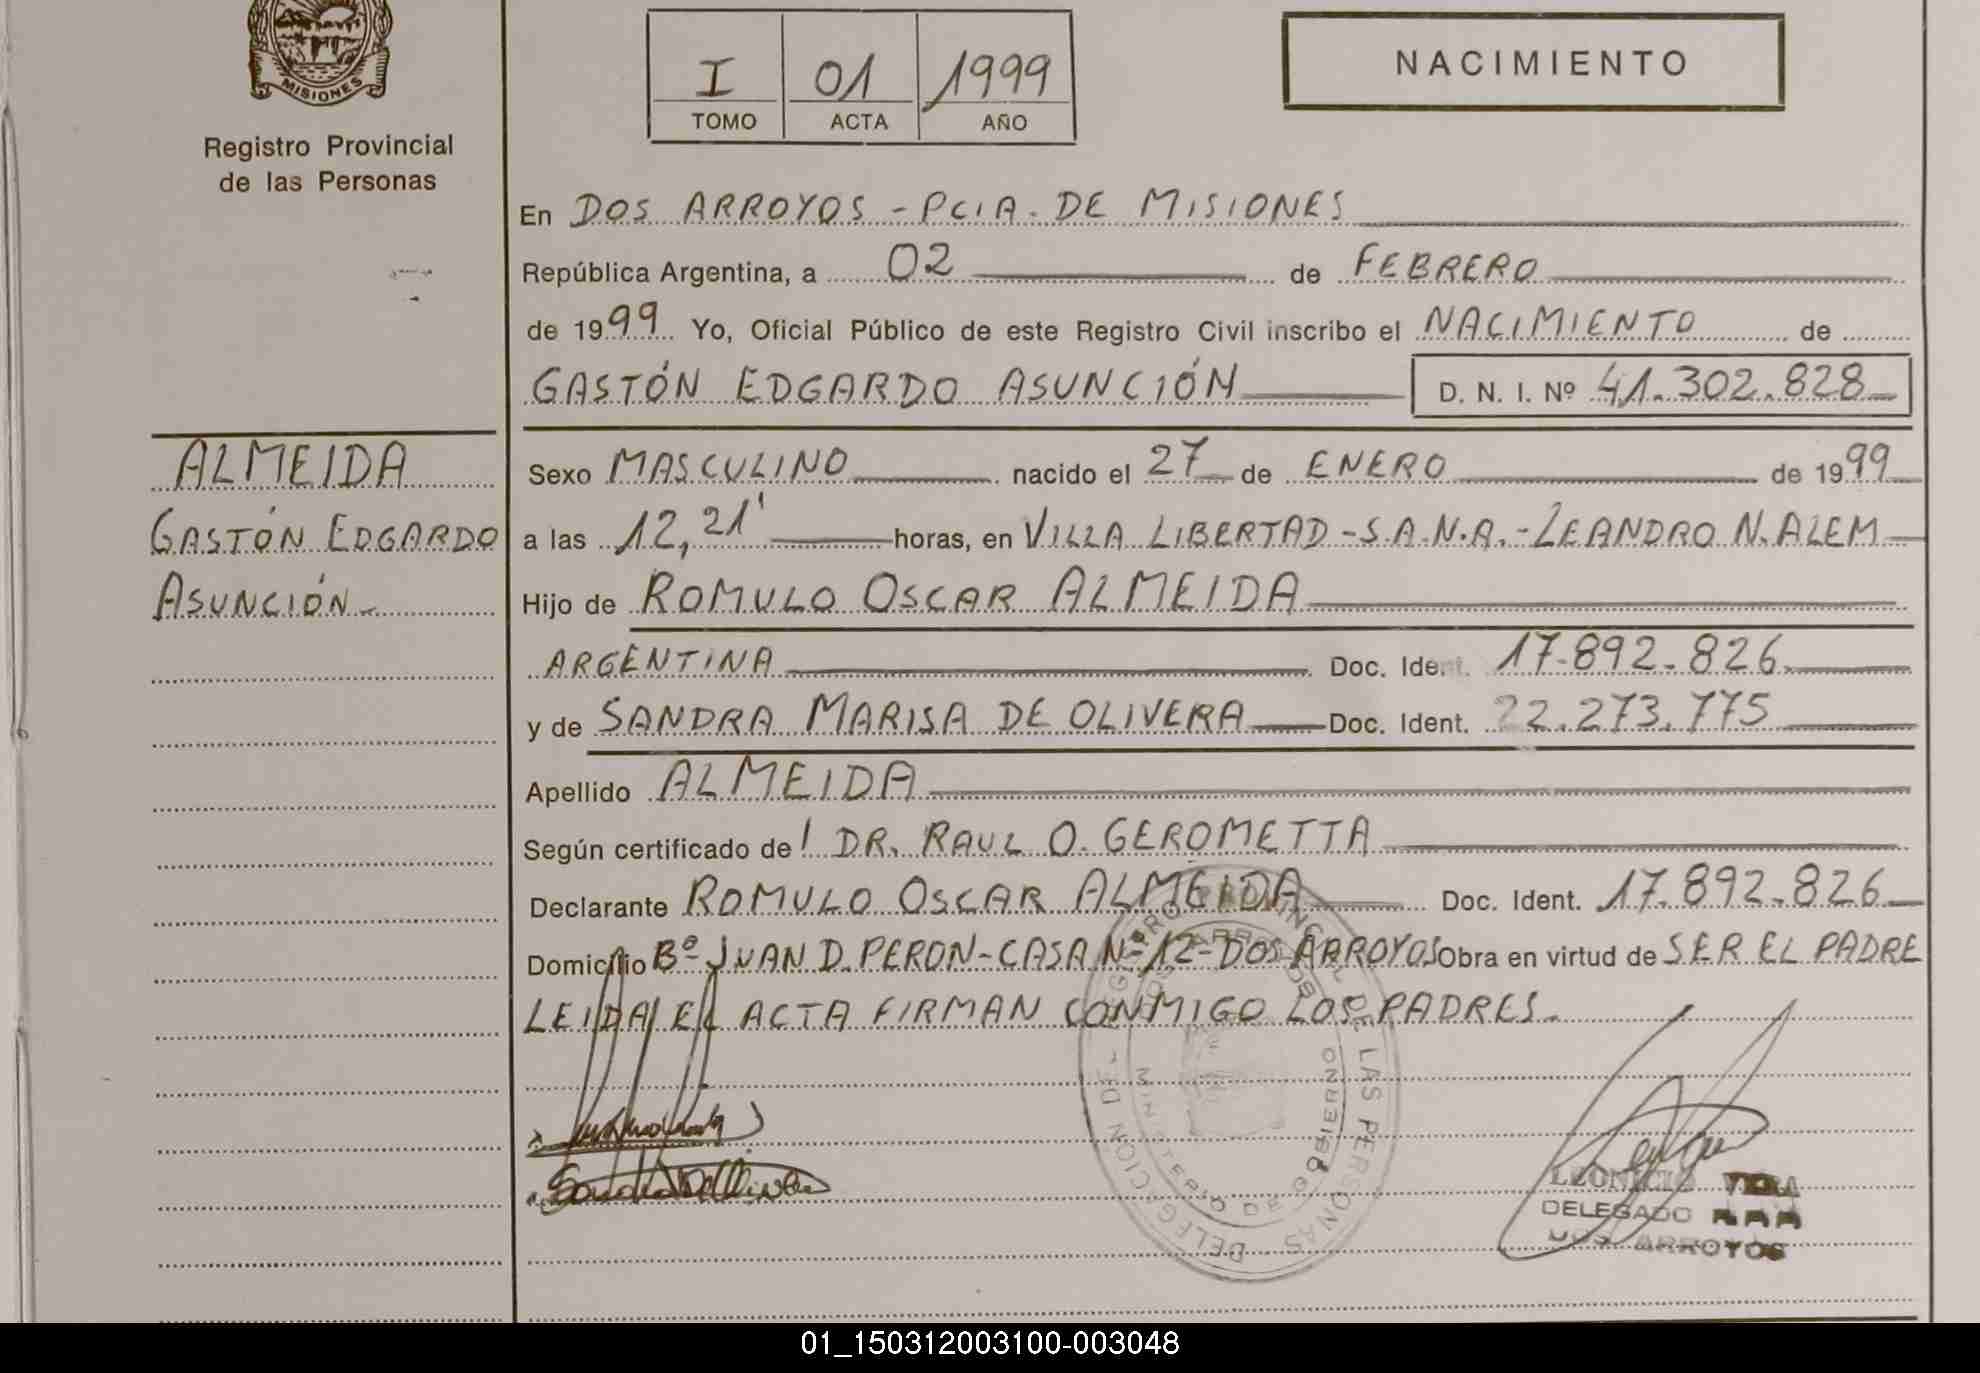 MISIONES
Registro Provincial
de las Personas
I 01 1999
TOMO ACTA AÑO
NACIMIENTO
En DOS ARROYOS - PCIA. DE MISIONES
República Argentina, a 02 de FEBRERO
de 1999 Yo, Oficial Público de este Registro Civil inscribo el NACIMIENTO de
GASTÓN EDGARDO ASUNCIÓN D. N. I. Nº 41.302.828
ALMEIDA
GASTÓN EDGARDO
ASUNCIÓN
Sexo MASCULINO nacido el 27 de ENERO de 1999
a las 12,21' horas, en VILLA LIBERTAD - S.A.N.A. - LEANDRO N. ALEM
Hijo de ROMULO OSCAR ALMEIDA
ARGENTINA Doc. Ident. 17.892.826
y de SANDRA MARISA DE OLIVERA Doc. Ident. 22.273.775
Apellido ALMEIDA
Según certificado del DR. RAUL O. GEROMETTA
Declarante ROMULO OSCAR ALMEIDA Doc. Ident. 17.892.826
Domicilio Bº JUAN D. PERON - CASA Nº 12 - DOS ARROYOS Obra en virtud de SER EL PADRE
LEIDA EL ACTA FIRMAN CONMIGO LOS PADRES.
REGISTRO PROVINCIAL DE LAS PERSONAS
DELEGACION DE
DOS ARROYOS
MINISTERIO DE GOBIERNO
Sandra De Olivera
LEONICIO
DELEGADO
DOS ARROYOS
01_150312003100-003048